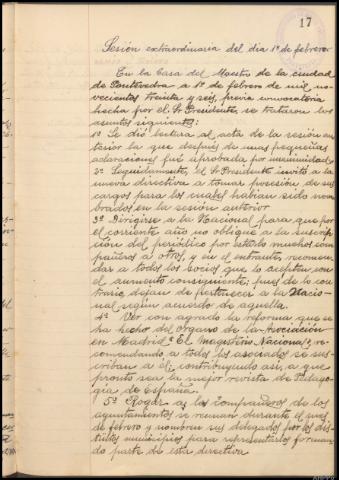 17
Sesión extraordinaria del día 1º de febrero
En la Casa del Maestro de la ciudad
de Pontevedra a 1º de febrero de mil no-
vecientos treinta y seis, previa convocatoria
hecha por el Sr Presidente, se trataron los
asuntos siguientes:
1º Se dió lectura al acta de la sesión an-
terior la que después de unas pequeñas
aclaraciones fué aprobada por unanimidad
2º Seguidamente, el Sr Presidente invitó a la
nueva directiva a tomar posesión de sus
cargos para los cuales habían sido nom-
brados en la sesión anterior
3º Dirigirse a la Nacional para que por
el corriente año no obligue a la suscrip-
ción del periódico por estarlo muchos com-
pañeros a otros, y en el entrante, recomen-
dar a todos los socios que lo acepten con
el aumento consiguiente; pues de lo con-
trario dejan de pertenecer a la Nacio-
nal según acuerdo de aquella.
4º Ver con agrado la reforma que se
ha hecho del órgano de la Asociación
en Madrid "El Magisterio Nacional" y re-
comendando, a todos los asociados se sus-
criban a él; contribuyendo así, a que
pronto sea la mejor revista de Pedago-
gía de España.
5º Rogar a los compañeros de los
ayuntamientos se reunan durante el mes
de febrero y nombren sus delegados por los dis-
tintos municipios para representarlos forman-
do parte de esta directiva